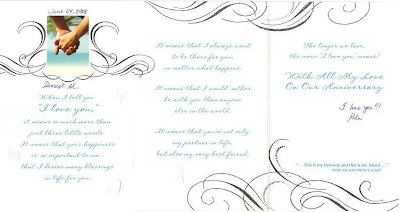 June 04, 2008
Dearest M.
When I tell you
"I love you,"
it means so much more than
just three little words.
It means that your happiness
is so important to me...
that I desire many blessings
in life for you.
It means that I always want
to be there for you
no matter what happens.
It means that I would rather
be with you than anyone
else in the world.
It means that you're not only
my partner in life,
but also my very best friend.
The longer we love,
the more "I love you" means!
With All My Love
On Our Anniversary
I love you!!!
"...This is my beloved, and this is my friend..."
SONG OF SOLOMON 5:16 KJV